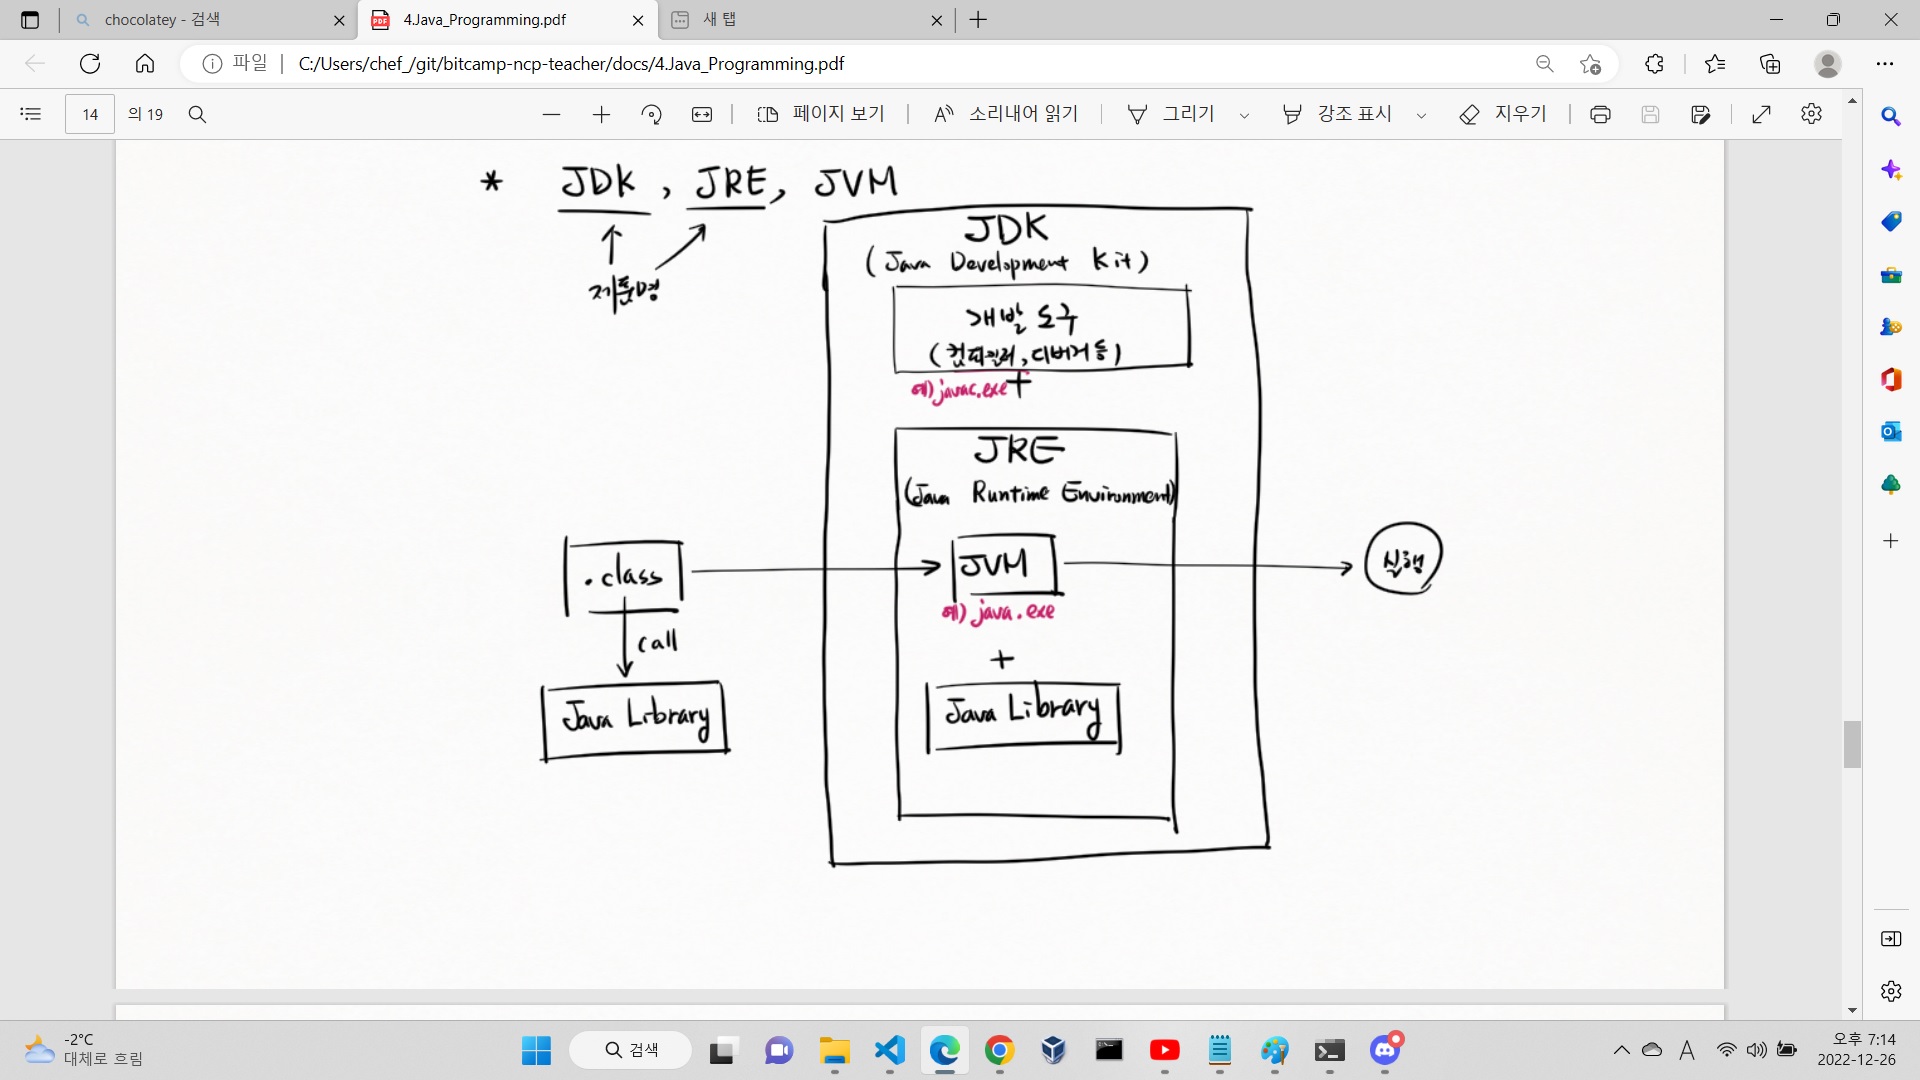 chocolatey - 검색
4.Java_Programming.pdf
새 탭
파일
C:/Users/chef_/git/bitcamp-ncp-teacher/docs/4.Java_Programming.pdf
14 의 19
페이지 보기
소리내어 읽기
그리기
강조 표시
지우기
* JDK, JRE, JVM
제품명
JDK
(Java Development Kit)
개발 도구
(컴파일러, 디버거 등)
예) javac.exe +
JRE
(Java Runtime Environment)
.class
JVM
실행
예) java.exe
call
+
Java Library
Java Library
-2°C
대체로 흐림
검색
A
오후 7:14
2022-12-26